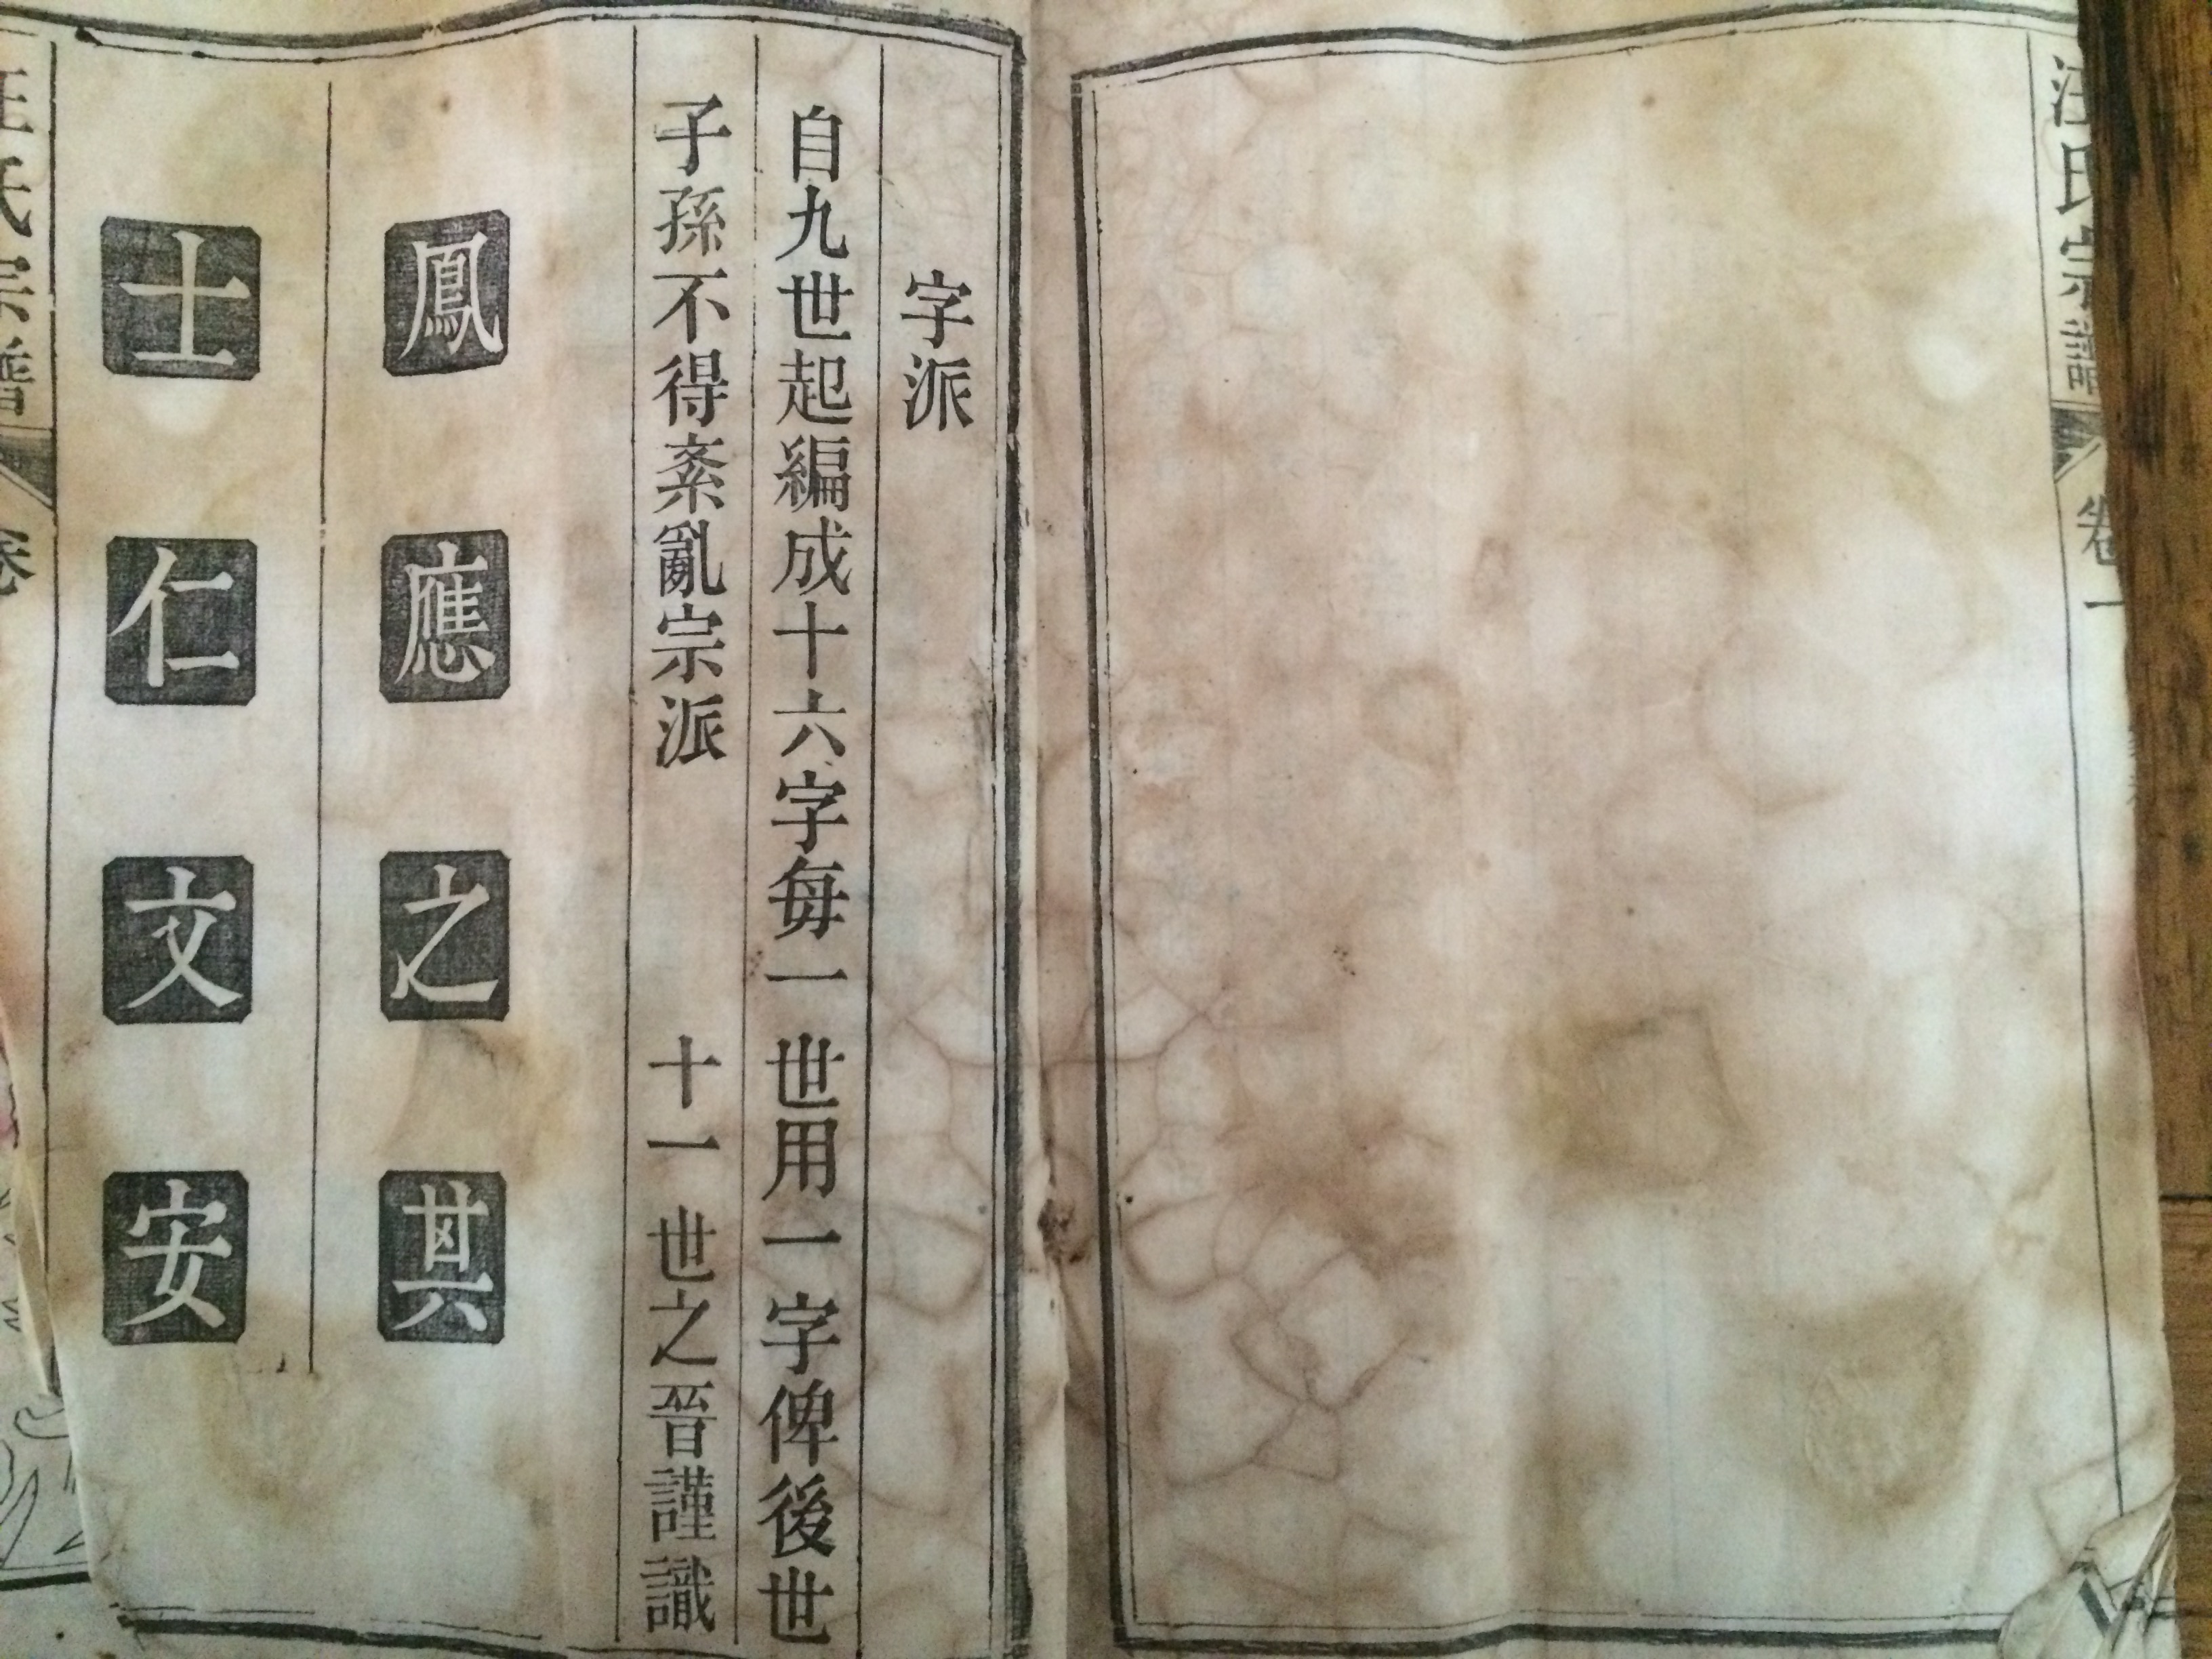 汪氏宗譜
卷一
字派
自九世起編成十六字每一世用一字俾後世
子孫不得紊亂宗派 十一世之晉謹識
鳳應之其
士仁文安
汪氏宗譜
卷